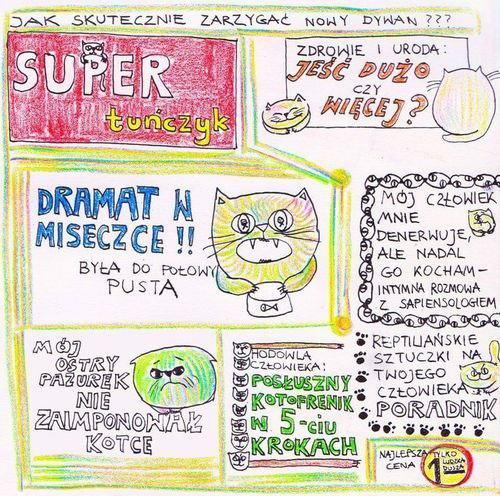 JAK SKUTECZNIE ZARZYGAĆ NOWY DYWAN ???
SUPER
tuńczyk
ZDROWIE I URODA:
JEŚĆ DUŻO
CZY
WIĘCEJ?
DRAMAT W
MISECZCE !!
BYŁA DO POŁOWY
PUSTA
MÓJ CZŁOWIEK
MNIE
DENERWUJE,
ALE NADAL
GO KOCHAM-
INTYMNA ROZMOWA
Z SAPIENSOLOGIEM
MÓJ
OSTRY
PAZUREK
NIE
ZAIMPONOWAŁ
KOTCE
HODOWLA
CZŁOWIEKA:
POSŁUSZNY
KOTOFRENIK
W 5-CIU
KROKACH
REPTILIAŃSKIE
SZTUCZKI NA
TWOJEGO
CZŁOWIEKA
PORADNIK
NAJLEPSZA
CENA
TYLKO
1 LUDZKA
DUSZA